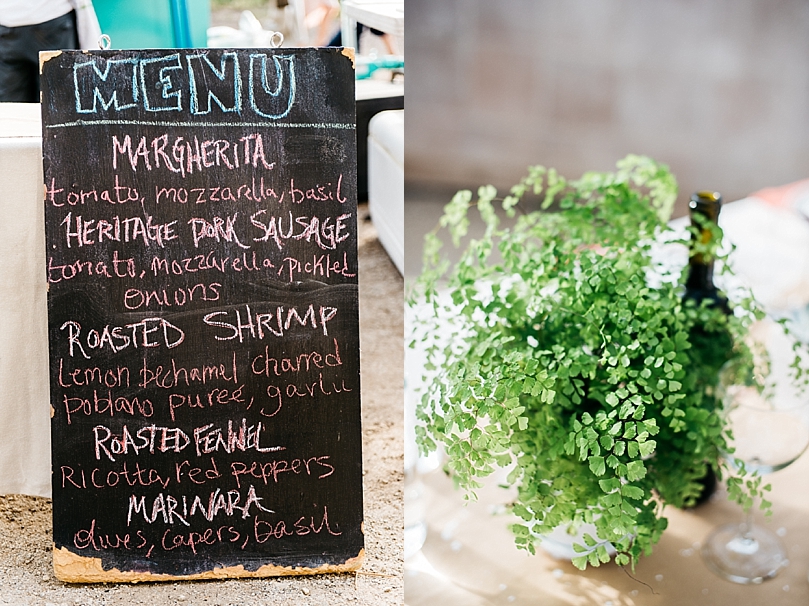 MENU
MARGHERITA
tomato, mozzarella, basil
HERITAGE PORK SAUSAGE
tomato, mozzarella, pickled
onions
ROASTED SHRIMP
Lemon bechamel charred
poblano pureé, garlic
ROASTED FENNEL
Ricotta, red peppers
MARINARA
olives, capers, basil